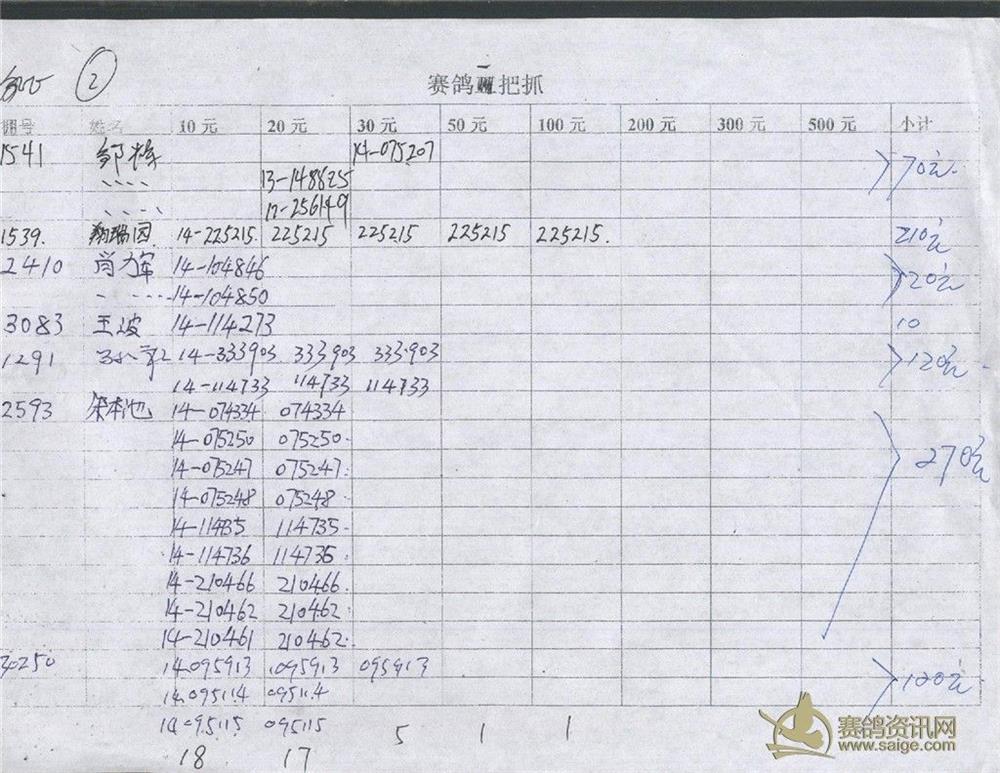 ②
赛鸽一把抓
棚号 姓名 10元 20元 30元 50元 100元 200元 300元 500元 小计
1541 邹栋 14-075207 70元
13-148825
12-256149
1539. 225215 14-225215. 225215 225215 225215 225215. 210元
2410 肖力军 14-104846 20元
14-104850
3083 王波 14-114273 10
1291 14-333903 333903 333903 120元
14-114733 114733 114733
2593 14-074334 074334 270元
14-075250 075250.
14-075247 075247.
14-075248 075248.
14-11435 114735.
14-114736 114736.
14-210466 210466.
14-210462 210462.
14-210461 210462.
30250 14.095913 .095913 095913 120元
14.095114 095114
14-095115 095115 5 1 1
18 17
赛鸽资讯网
www.saige.com